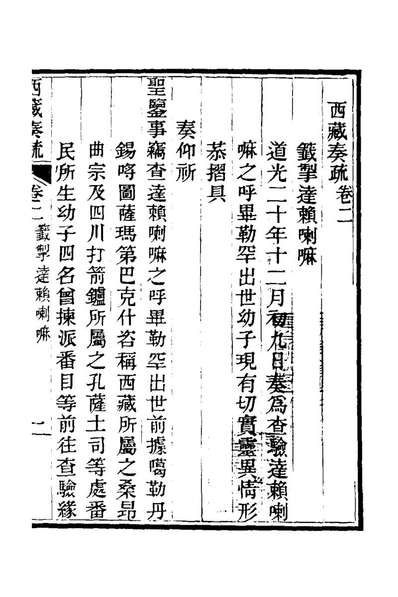 西藏奏疏卷二
籤掣達賴喇嘛
道光二十年十二月初九日奏爲查驗達賴喇
嘛之呼畢勒罕出世幼子現有切實靈異情形
恭摺具
奏仰祈
聖鑒事竊查達賴喇嘛之呼畢勒罕出世前據噶勒丹
錫呼圖薩瑪第巴克什咨稱西藏所屬之桑昂
曲宗及四川打箭鑪所屬之孔薩土司等處番
民所生幼子四名曾揀派番目等前往查驗緣
西藏奏疏 卷二 籤掣達賴喇嘛 一